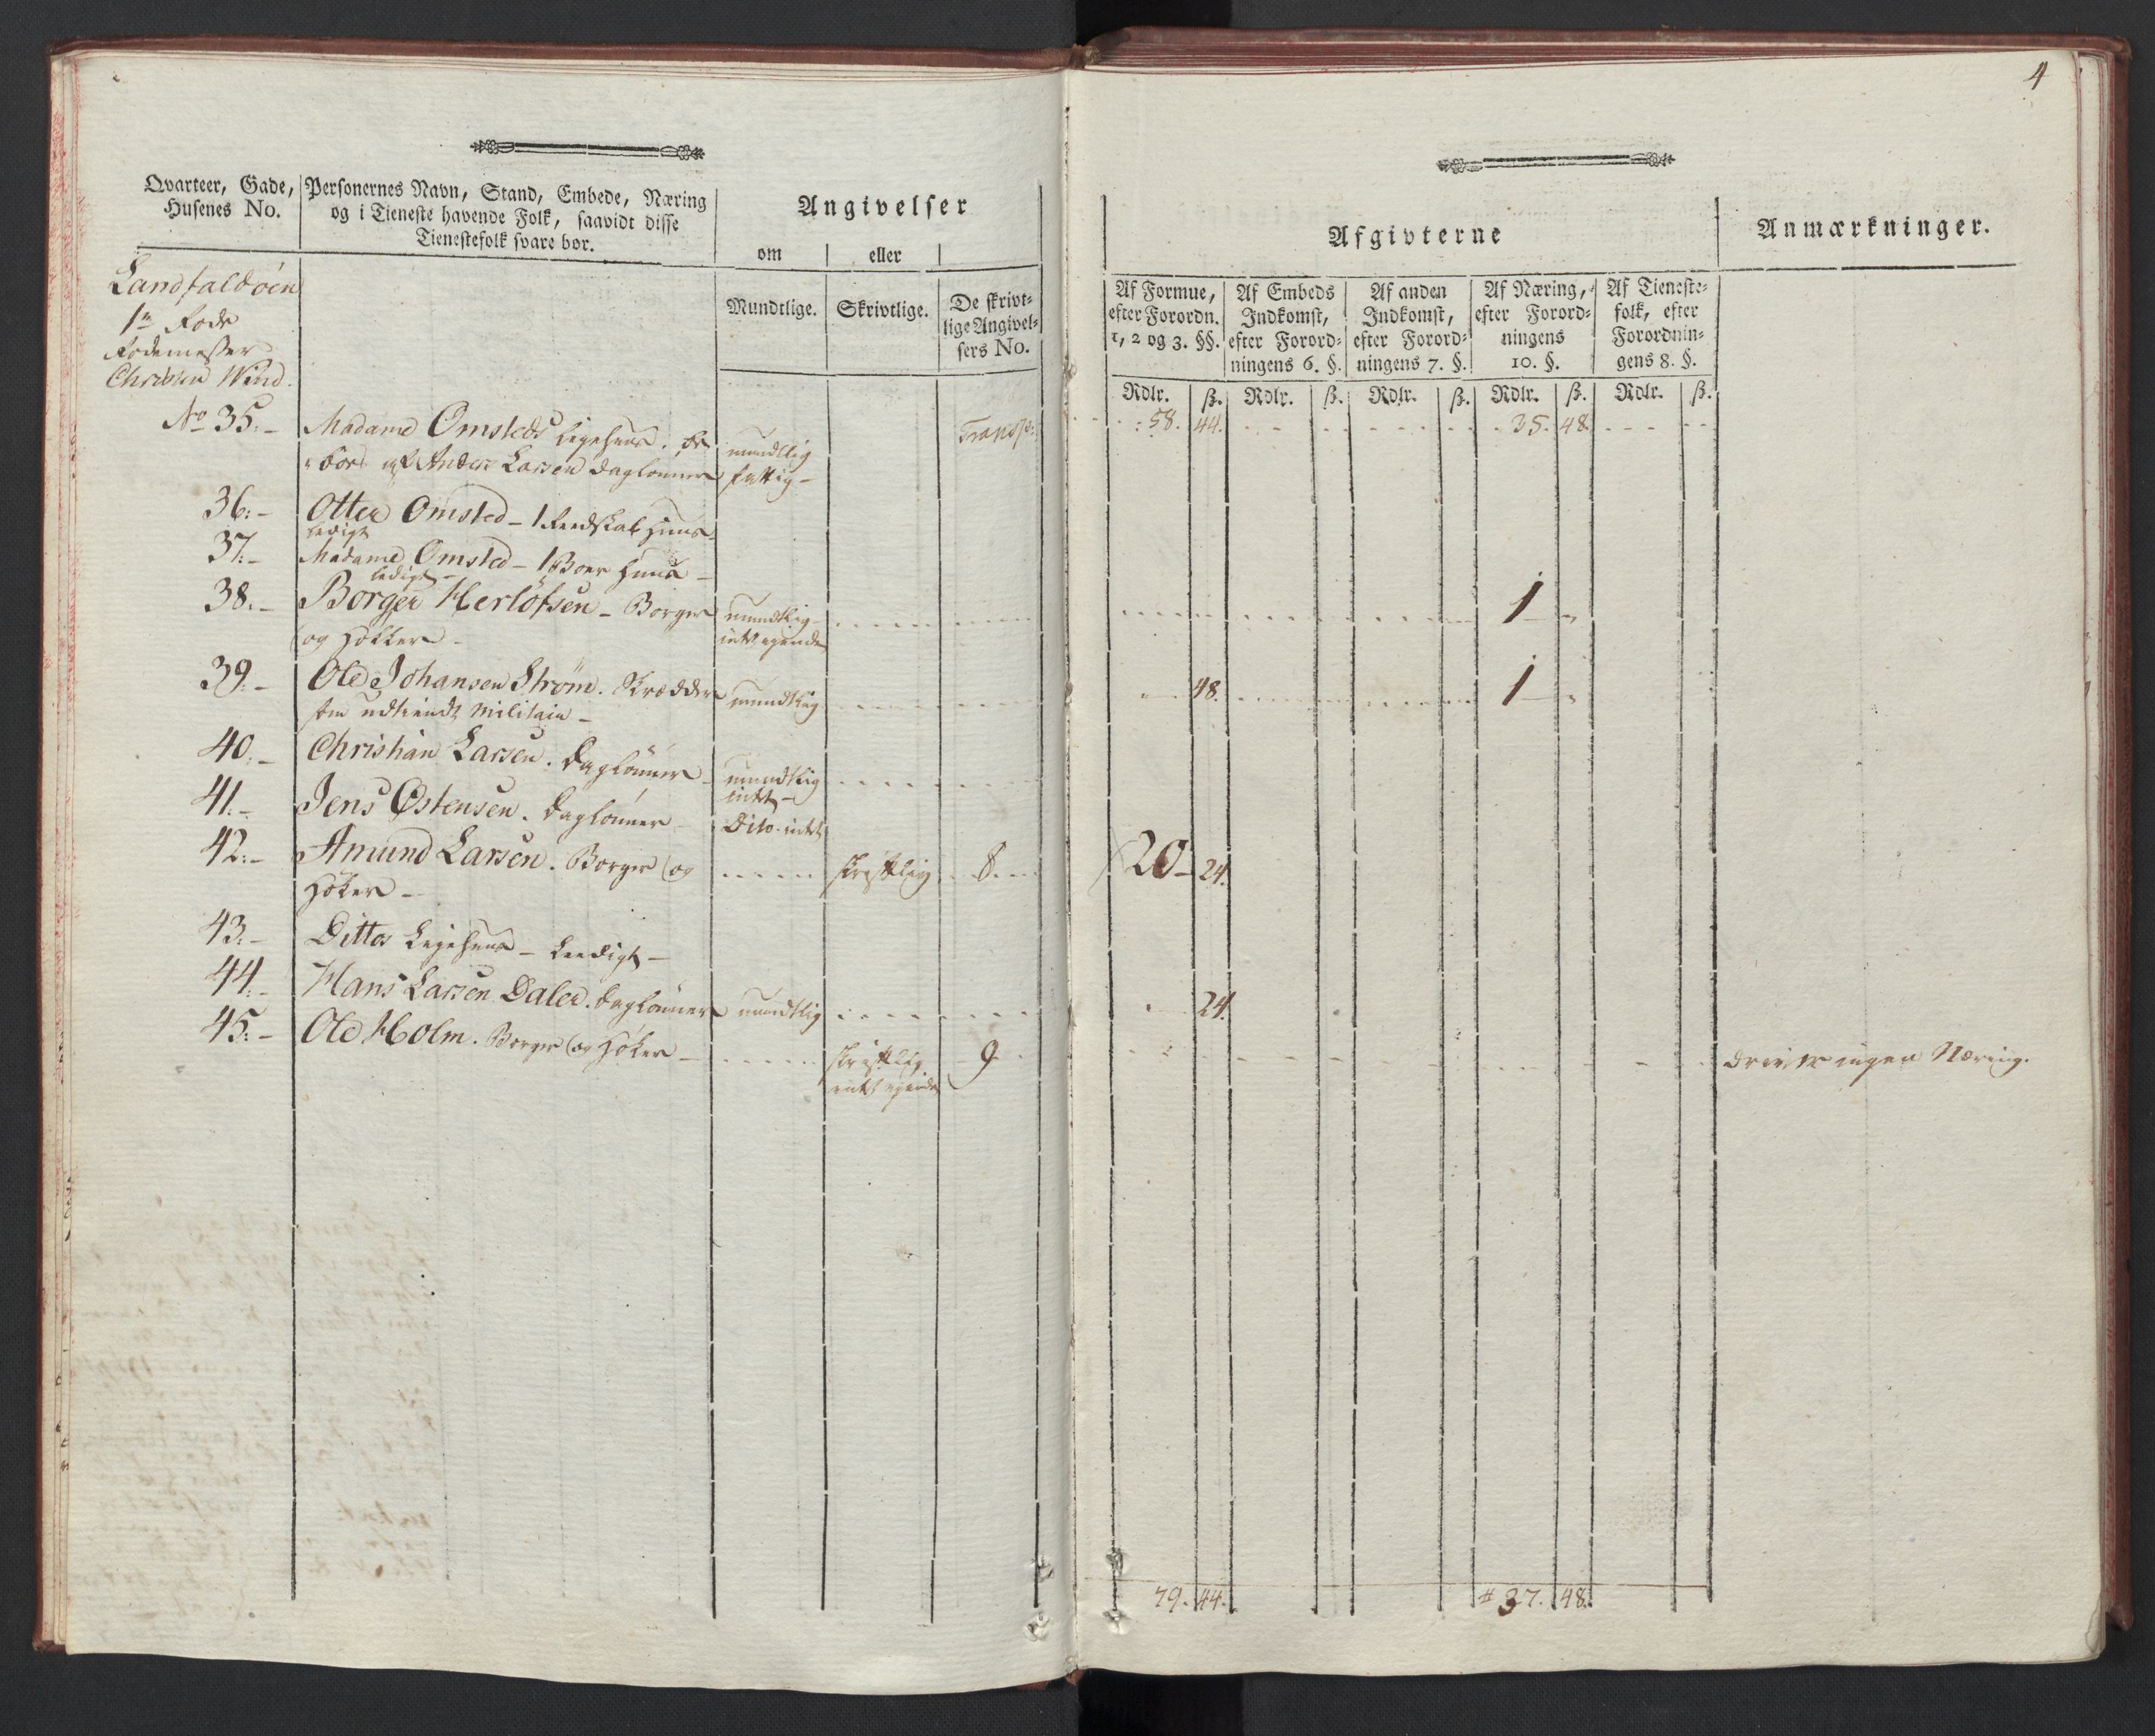 4
Qvarteer, Gade,
Husenes No.
Personernes Navn, Stand, Embede, Næring
og i Tieneste havende Folk, saavidt disse
Tienestefolk svare bør.
Angivelser
om eller
Mundtlige. Skrivtlige. De skrivt-
lige Angivel-
sers No.
Afgivterne
Anmærkninger.
Af Formue,
efter Forordn.
1, 2 og 3. §§.
Af Embeds
Indkomst,
efter Forord-
ningens 6. §.
Af anden
Indkomst,
efter Forord-
ningens 7. §.
Af Næring,
efter Forord-
ningens
10. §.
Af Tieneste-
folk, efter
Forordnin-
gens 8. §.
Rdlr. ß. Rdlr. ß. Rdlr. ß. Rdlr. ß. Rdlr. ß.
Landfaldøen
1te Rode
Rodemester
Christen Wind.
Transp: 58. 44. 35. 48.
No 35. Madame Omsteds Leyehuus. mundtlig
af Anders Larsen Daglønner fattig
36. Otter Omsted - 1 Reedskab Huus
ledigt
37. Madame Omsted - 1 Boer Huus
ledigt
38. Borger Herlofsen - Borger mundtlig 1
og Høkker intet ejende
39. Ole Johansen Strøm. Skrædder mundtlig 48. 1
udtient Militair
40. Christian Larsen. Daglønner mundtlig
intet
41. Jens Østensen. Daglønner Dito intet
42. Amund Larsen. Borger og skriftlig 8. 20 24.
Høker
43. Dittos Leyehuus - Leedigt
44. Hans Larsen Daler. Daglønner mundtlig 24.
45. Ole Holm. Borger og Høker skriftlig 9 driver ingen Næring.
intet ejende
79. 44. 37. 48.